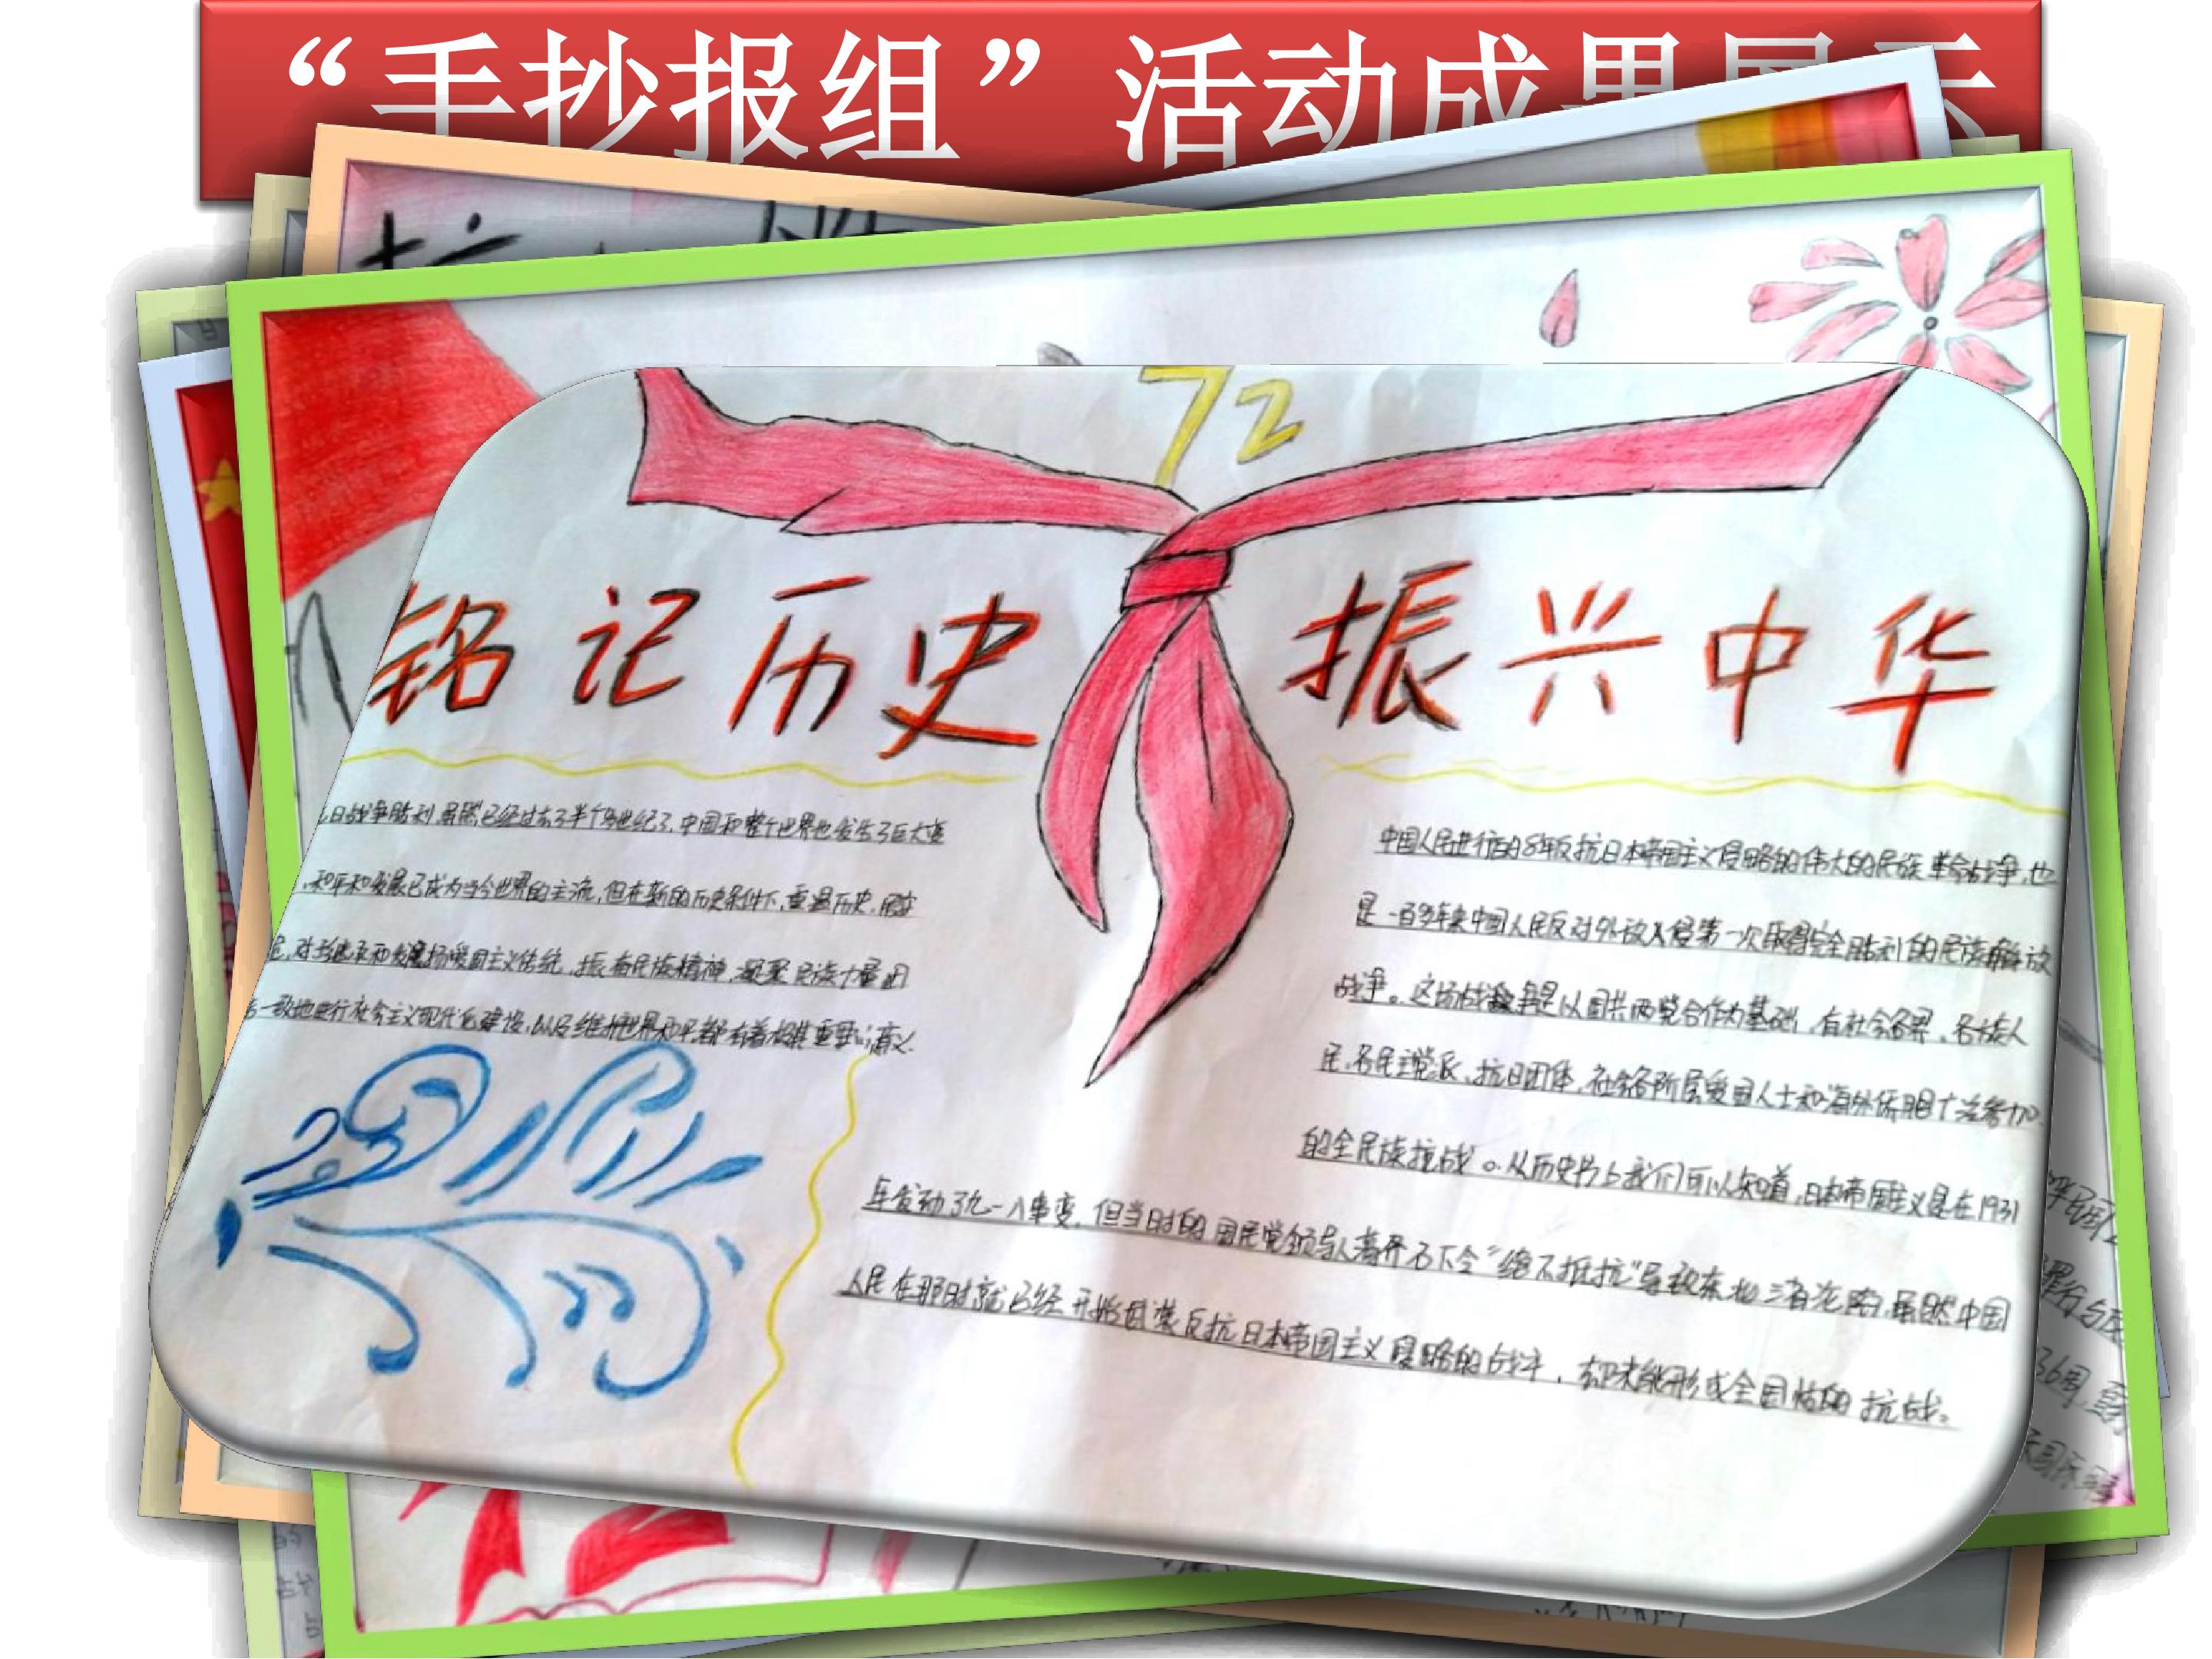 “手抄报组”活动成果展示
72
铭记历史 振兴中华
日战争胜利,虽然已经过去了半个多世纪了,中国和整个世界也发生了巨大变
,和平和发展已成为当今世界的主流,但在新的历史条件下,重温历史,
,对继承和发扬爱国主义传统,振奋民族精神,凝聚民族力量,
一致地进行社会主义现代化建设,以及维护世界和平,都有着极其重要的意义.
中国人民进行的8年反抗日本帝国主义侵略的伟大的民族革命战争,也
是一百多年来中国人民反对外敌入侵第一次取得完全胜利的民族解放
战争。这场战争是以国共两党合作为基础,有社会各界、各族人
民、各民主党派、抗日团体、社会各阶层爱国人士和海外侨胞广泛参加
的全民族抗战。从历史书上我们可以知道,日本帝国主义是在1931
年发动了九一八事变,但当时的国民党领导人蒋介石下令“绝不抵抗”导致东北三省沦陷,虽然中国
人民在那时就已经开始武装反抗日本帝国主义侵略的战斗,却未能形成全国性的抗战。